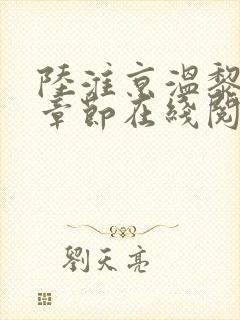 陸淮京溫黎
章節在綫閱
劉天亮